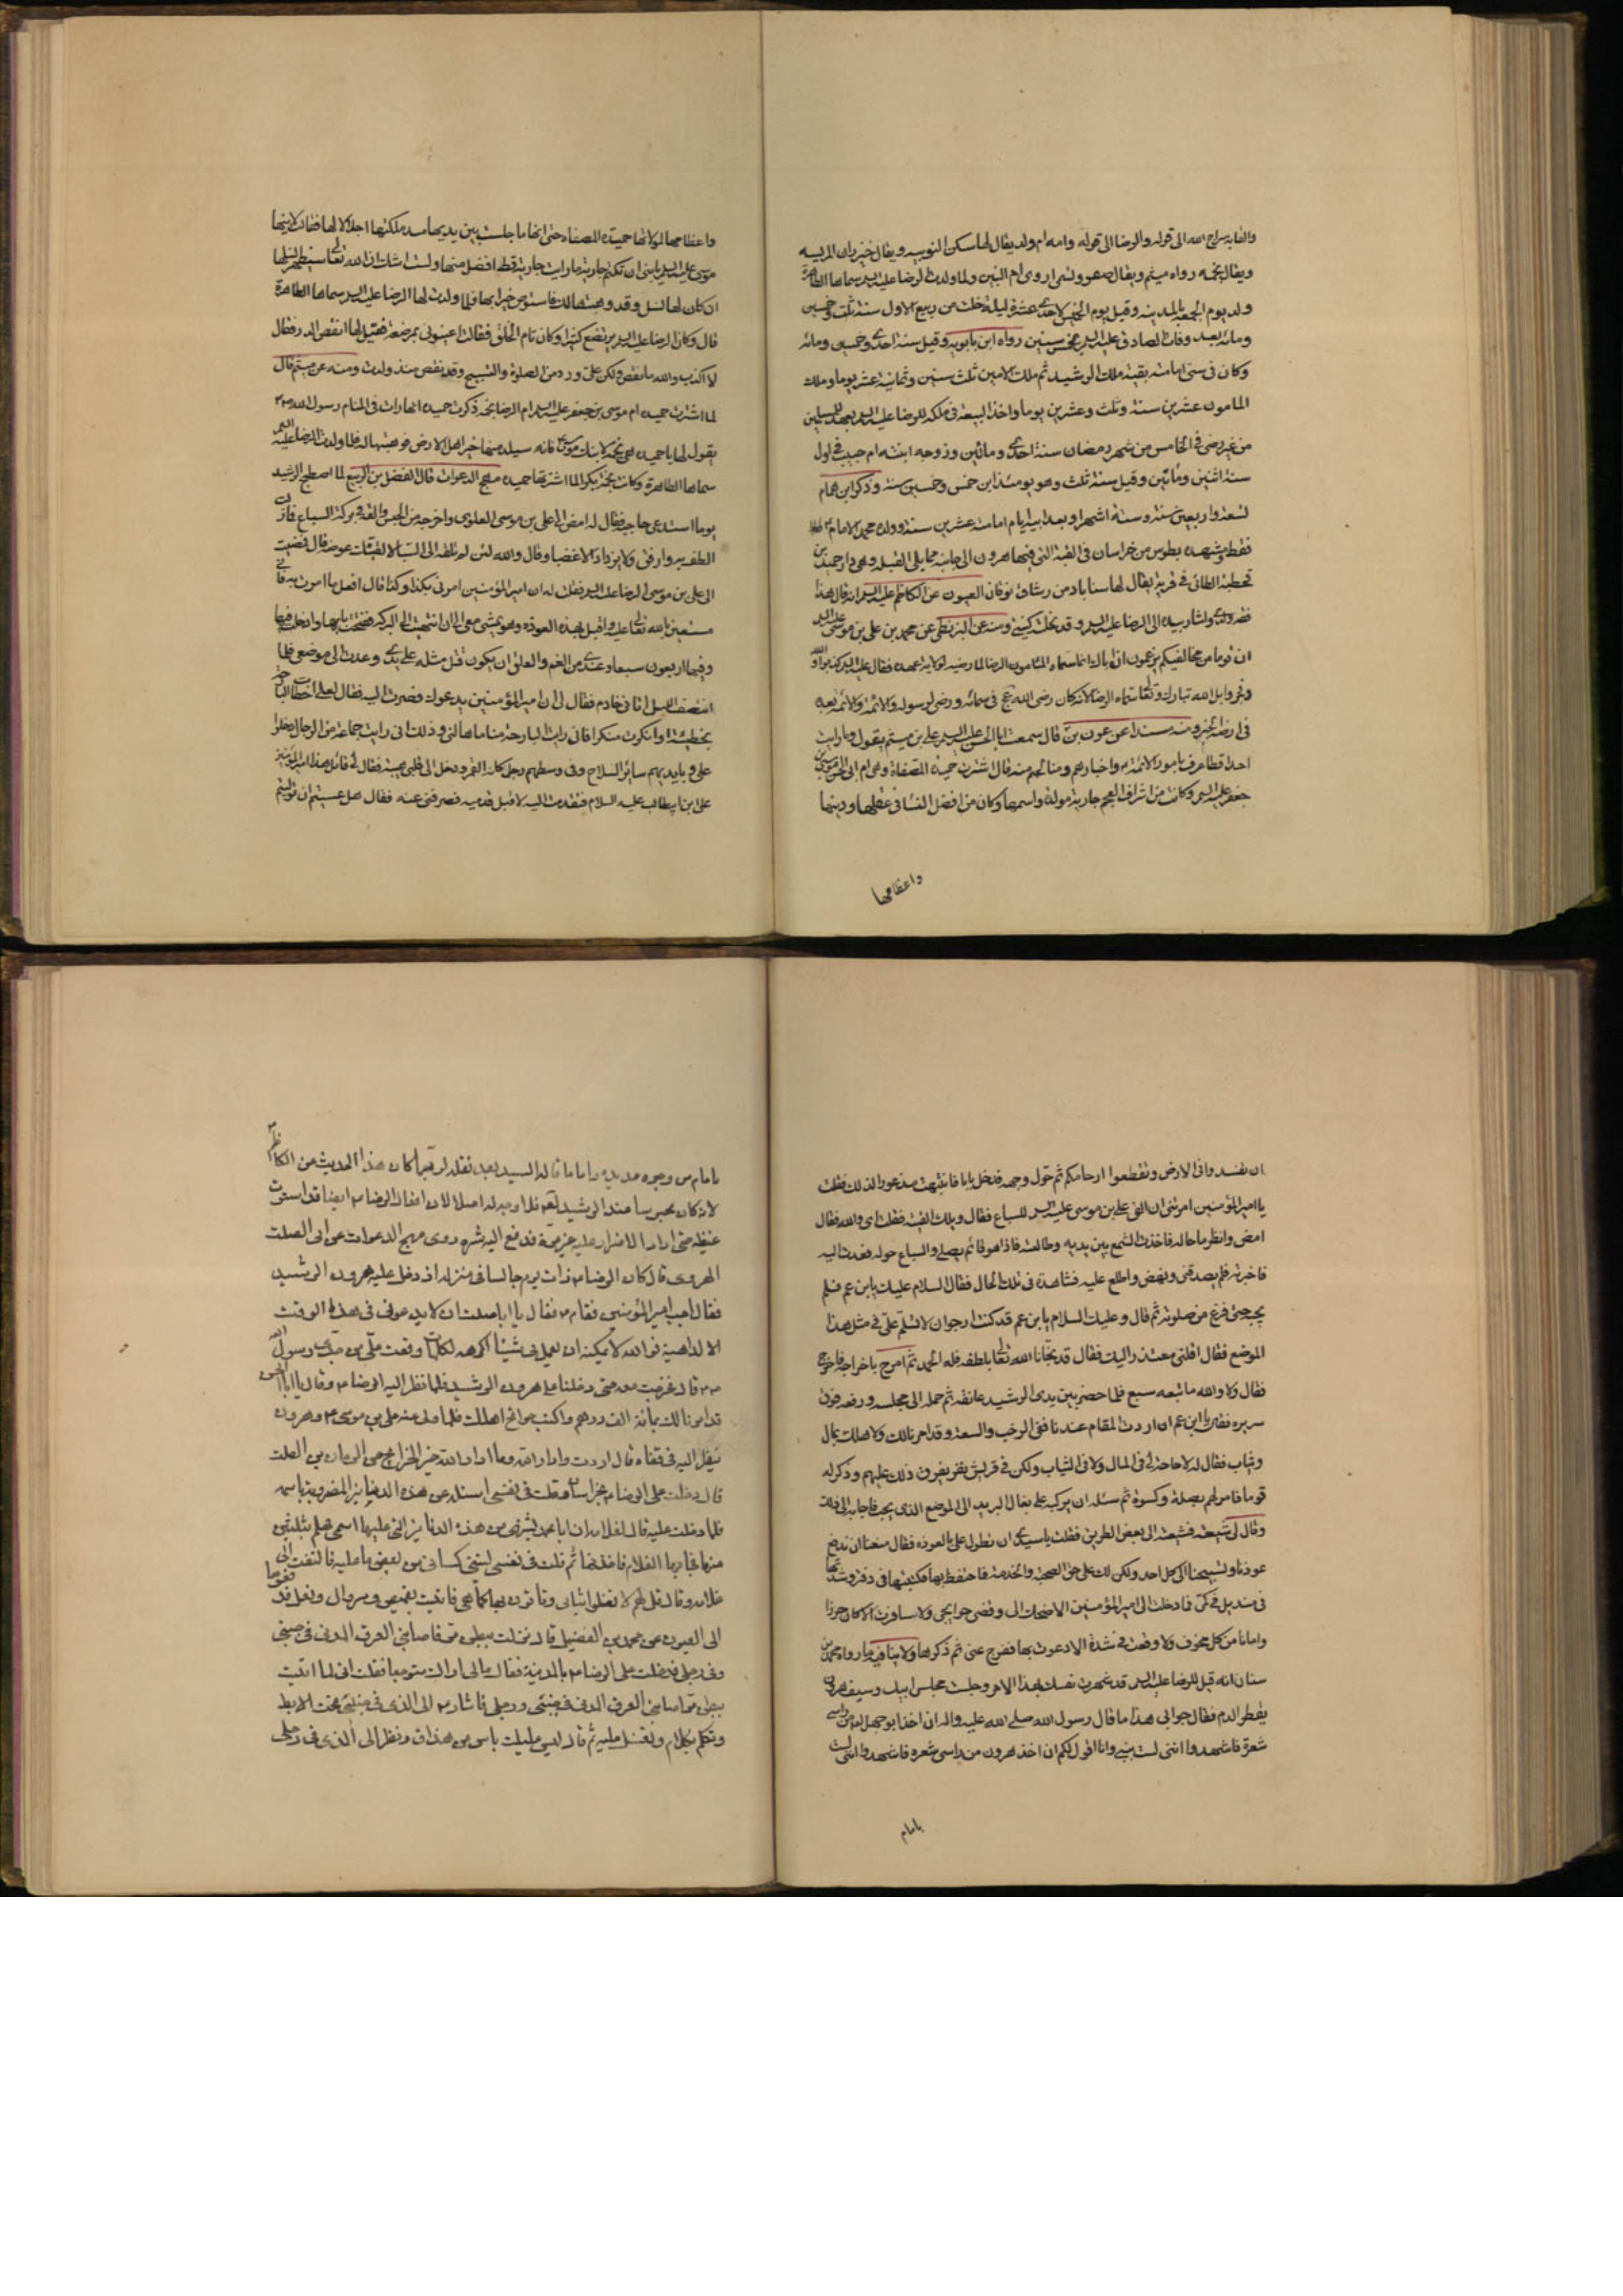 والغاية سراج الله الى قوله والرضا الى قوله وامه ام ولد يقال لها سكن النوبيه ويقال خيزران المريسيه
ويقال نجمه رواه ميثم ويقال صقر وتسمى اروى ام البنين ولما ولدت الرضا عليه السلم سماها الطاهرة
ولد يوم الجمعه بالمدينه وقيل يوم الخميس لاحدى عشرة ليلة خلت من ربيع الاول سنة ثلث وخمسين
ومائه بعد وفات الصادق عليه السلم بخمس سنين رواه ابن بابويه وقيل سنة احدى وخمسين ومائه
وكان في سنى امامته بقية ملك الرشيد ثم ملك الامين ثلث سنين وثمانية عشر يوما وملك
المامون عشرين سنة وثلث وعشرين يوما واخذ البيعة في ملكه للرضا عليه السلم بعهد المسلمين
من غير رضى في الخامس من شهر رمضان سنة احدى ومائتين وزوجه ابنته ام حبيب في اول
سنة اثنتين ومائتين وقيل سنة ثلث وهو يومئذ ابن خمس وخمسين سنة وذكر ابن همام
لتسعة واربعين سنة وستة اشهر وبعد ابيه ايام امامته عشرين سنة وولده محمد الامام
فقط ومشهده بطوس من خراسان في القبة التي فيها هرون الى جانبه مما يلى القبلة وهي دار حميد بن
قحطبة الطائى في قرية يقال لها سناباد من رستاق نوقان العيون عن الكاظم عليه السلم انه قال هذا
ولدى واشار بيده الى الرضا عليه السلم وقد نحلته كنيتي ومنه عن البزنطى عن محمد بن علي بن موسى عليه السلم
ان قوما من مخالفيكم يزعون ان اباك انما سماه المامون الرضا لما رضيه لولاية عهده فقال عليه السلم كذبوا والله
وفجروا بل الله تبارك وتعالى سماه الرضا لانه كان رضى الله عز وجل في سمائه ورضى لرسوله والائمة والائمة بعده
في ارضه الخبر ومنه مسندا عن عون بن قال سمعت ابا الحسن علي بن ميثم يقول وما رايت
احدا قط اعرف بامور الائمة واخبارهم ومناكحهم منه قال اشترت حميدة المصفاة وهي ام ابى الحسن موسى بن
جعفر عليه السلم وكانت من اشراف العجم جارية مولدة واسمها وكان من افضل النسا في عقلها ودينها
واعظامها
واعظامها لمولاتها حميدة المصفاة حتى انها ما جلست بين يديها منذ ملكتها اجلالا لها فقالت لابنها
موسى عليه السلم يا بنى ان تكتم جارية ما رايت جارية قط افضل منها ولست اشك ان الله تعالى سيطهر نسلها
ان كان لها نسل وقد وهبتها لك فاستوص خيرا بها فلما ولدت لها الرضا عليه السلم سماها الطاهرة
قال وكان الرضا عليه السلم يرتضع كثيرا وكان تام الخلق فقالت اعينونى بمرضعة فقيل لها انقص الدر فقال
لا اكذب والله ما نقص ولكن على ورد من الصلوة والتسبيح وقد نقص منذ ولدت ومنه عن ميثم قال
لما اشترت حميده ام موسى بن جعفر عليه السلم ام الرضا نجمه ذكرت حميده انها رات في المنام رسول الله
يقول لها يا حميده هبى نجمه لابنك موسى فانه سيلد منها خير اهل الارض فوهبتها له فلما ولدت الرضا عليه السلم
سماها الطاهرة وكانت نجمة بكرا لما اشترتها حميده مهج الدعوات قال الفضل بن الربيع لما اصطبح الرشيد
يوما استدعى حاجبه فقال له امض الى على بن موسى العلوى واخرجه من الحبس والقه في بركة السباع فما زلت
الطفه وارفق ولا يزداد الا غضبا وقال والله لئن لم تلقه الى السباع لالقيتك عوضه قال فمضيت
الى على بن موسى الرضا عليه السلم فقلت له ان امير المؤمنين امرنى بكذا وكذا قال افعل ما امرت به فانى
مستعين بالله تعالى عليه واقبل بهذه العوذه وهو يمشى معى الى ان انتهيت الى البركه ففتحت بابها وادخلته فيها
وفيها اربعون سبعا وعندى من الغم والقلق ان يكون قتل مثله على يدى وعدت الى موضعى فلما
انتصف الليل اتانى خادم فقال لى ان امير المؤمنين يدعوك فصرت اليه فقال لعلى اخطات البارحة
بخطيئة او اتيت منكرا فانى رايت البارحة مناما هالنى وذلك انى رايت جماعة من الرجال دخلوا
على وبايديهم سائر السلاح وفى وسطهم رجل كانه القمر ودخل الى قلبى هيبته فقال لى قائل هذا امير المؤمنين
على بن ابيطالب عليه السلام فتقدمت اليه لاقبل قدميه فصرفنى عنه فقال هل عسيتم ان توليتم
ان تفسدوا فى الارض وتقطعوا ارحامكم ثم حول وجهه فدخل بابا فانتبهت مذعورا لذلك فقلت
يا امير المؤمنين امرتنى ان القى على بن موسى عليه السلم للسباع فقال ويلك القيته فقلت اى والله فقال
امض وانظر ما حاله فاخذت الشمع بين يديه وطالعته فاذا هو قائم يصلى والسباع حوله فعدت اليه
فاخبرته فلم يصدقنى ونهض واطلع عليه فشاهده فى تلك الحال فقال السلام عليك يا بن عم فلم
يجبه حتى فرغ من صلوته ثم قال وعليك السلام يا بن عم قد كنت ارجو ان لا تسلم على فى مثل هذا
الموضع فقال اقلنى معتذر اليك فقال قد نجانا الله تعالى بلطفه فله الحمد ثم امر باخراجه فاخرج
فقال ولا والله ما تبعه سبع فلما حضر بين يدى الرشيد عانقه ثم حمله الى مجلسه ورفعه فوق
سريره فقال يا بن عم ان اردت المقام عندنا ففى الرحب والسعة وقد امرنا لك ولاهلك بمال
وثياب فقال له لا حاجة لى فى المال ولا فى الثياب ولكن فى قريش نفر يفرق ذلك عليهم وذكر له
قوما فامر لهم بصلة وكسوة ثم سئله ان يركبه على بغال البريد الى الموضع الذى يحب فاجابه الى ذلك
وقال لى شيعه فشيعته الى بعض الطريق فقلت يا سيدى ان تطول على بالعوذه فقال منعنا ان ندفع
عوذنا وتسبيحنا الى كل احد ولكن لك على حق الصحبة والخدمة فاحتفظ بها فكتبتها فى دفتر وشددتها
فى منديل فى كمى فما دخلت الى امير المؤمنين الا ضحك الى وقضى حوايجى ولا سافرت الا كان حرزا
وامانا من كل مخوف ولا وقعت فى شدة الا دعوت بها ففرج عنى ثم ذكرها ولا ينافيه ما رواه محمد بن
سنان انه قيل للرضا عليه السلم قد شهرت نفسك بهذا الامر وجلست مجلس ابيك وسيف هرون
يقطر الدم فقال جوابى هذا ما قال رسول الله صلى الله عليه واله ان اخذ ابو جهل من راسى
شعرة فاشهدوا اننى لست بنبى وانا اقول لكم ان اخذ هرون من راسى شعره فاشهدوا اننى لست
بامام
بامام من وجوه عديدة واما ما قاله السيد بعد نقله لربما كان هذا الحديث من الكاظم
لانه كان محبوسا عند الرشيد اصلا لان افعال الرضا ايضا قد استوت
غيظه حتى اراد الاضرار عليه غير مرة فدفع اليه شره روى مهج الدعوات عن ابى الصلت
الهروى قال كان الرضا ذات يوم جالسا فى منزله اذ دخل عليه هرون الرشيد
فقال اجب امير المؤمنين فقام فقال يا ابا صلت انه لا يدعونى فى هذا الوقت
الا لداهية فوالله لا يمكنه ان يعمل بى شيئا اكرهه لكلمات وقعت الى من جدى رسول الله
قال فخرجت معه حتى دخلنا على هرون الرشيد فلما نظر اليه الرضا وقال يا ابا الحسن
قد امرنا لك بمائة الف درهم واكتب حوائج اهلك فلما ولى عنه على بن موسى وهرون
ينظر اليه فى قفاه قال اردت واراد الله وما اراد الله خير الخرائج عن الريان بن الصلت
قال دخلت على الرضا بخراسان وقلت فى نفسى اسئله عن هذه الدنانير المضروبة باسمه
فلما دخلت عليه قال لغلامه ان ابا محمد يشتهى من هذه الدنانير التى عليها اسمى فهلم بثلثين
منها فجاء بها الغلام فاخذتها ثم قلت فى نفسى ليتنى كسانى من بعض ما عليه فالتفت الى
غلامه وقال قل لهم لا تغسلوا ثيابى وتاتون بها كما هى فاتيت بقميص وسروال ونعل فدفعوها
الى العيون عن محمد بن الفضيل قال نزلت ببطن مر فاصابنى العرق المدنى فى جنبى
وفى رجلى فدخلت على الرضا بالمدينة فقال مالى اراك متوجعا فقلت انى لما اتيت
بطن مر اصابنى العرق المدنى فى جنبى ورجلى فاشار الى الذى فى جنبى تحت الابط
وتكلم بكلام وتفل عليه ثم قال ليس عليك باس من هذا ونظر الى الذى فى رجلى